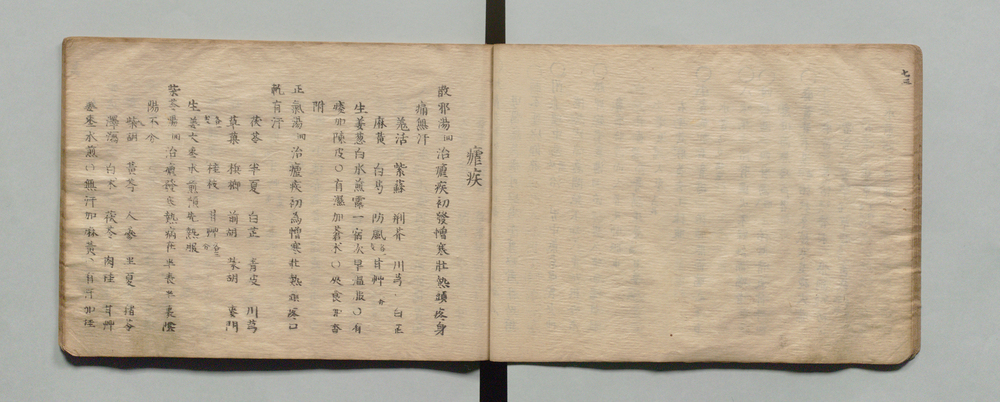 瘧疾
散邪湯回治瘧疾初發憎寒壯熱頭疼身
痛無汗
羌活 紫蘇 荊芥 川芎 白芷
麻黃 白芍 防風 甘艸
生姜葱白水煎露一宿次早溫服○有
痰加陳皮○有濕加蒼朮○夾食加香
附
正氣湯回治瘧疾初為憎寒壯熱頭疼口
乾有汗
茯苓 半夏 白芷 青皮 川芎
草菓 檳榔 前胡 柴胡 麥門
桂枝 甘艸
生姜大棗水煎頓先熱服
柴苓湯回治瘧發寒熱病在半表半裏陰
陽不分
柴胡 黃芩 人參 半夏 猪苓
澤瀉 白朮 茯苓 肉桂 甘艸
姜棗水煎○無汗加麻黃、有汗加桂